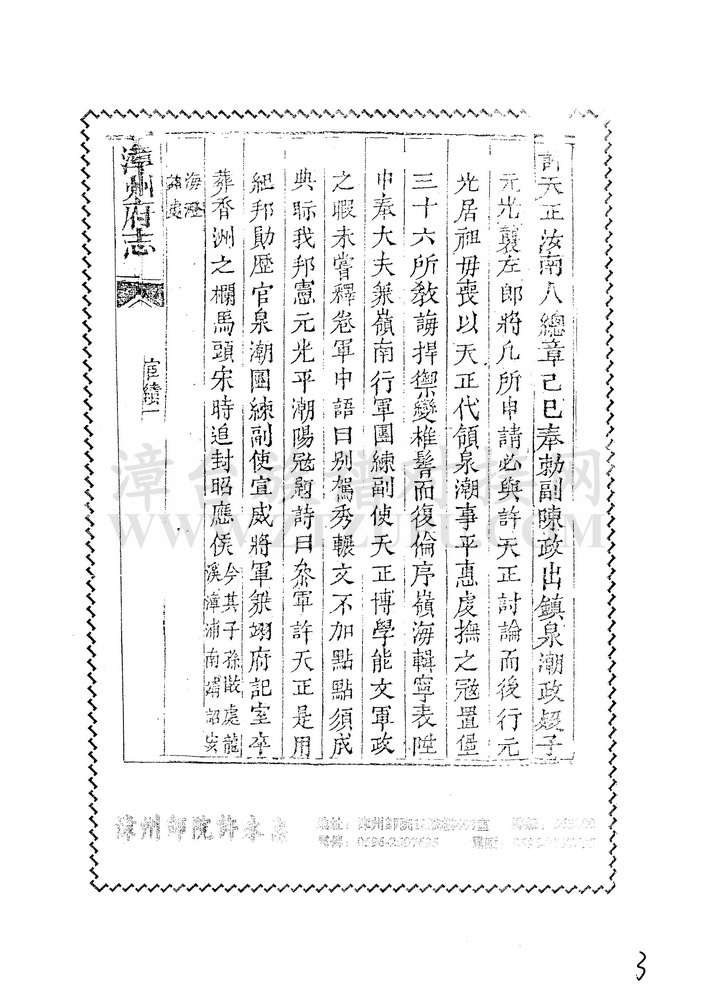 許天正汝南人總章己巳奉勅副陳政出鎮泉潮政歿子
元光襲左郎將凡所申請必與許天正討論而後行元
光居祖毋喪以天正代領泉潮事平惠虔撫之冦置堡
三十六所敎誨捍禦變椎髻而復倫序嶺海輯寧表陞
中奉大夫兼嶺南行軍團練副使天正博學能文軍政
之暇未嘗釋卷軍中語曰别駕秀輾文不加點點須成
典际我邦憲元光平潮陽冦題詩曰叅軍許天正是用
紀邦勛歷官泉潮團練副使宣威將軍兼翊府記室卒
葬香洲之欄馬頭宋時追封昭應侯
今其子孫散處龍
溪漳浦南靖詔安
海澄
諸處
漳州府志
宦績一
漳州師院許永忠
漳台族谱对接网
WWW.ZTZUPU.COM
3